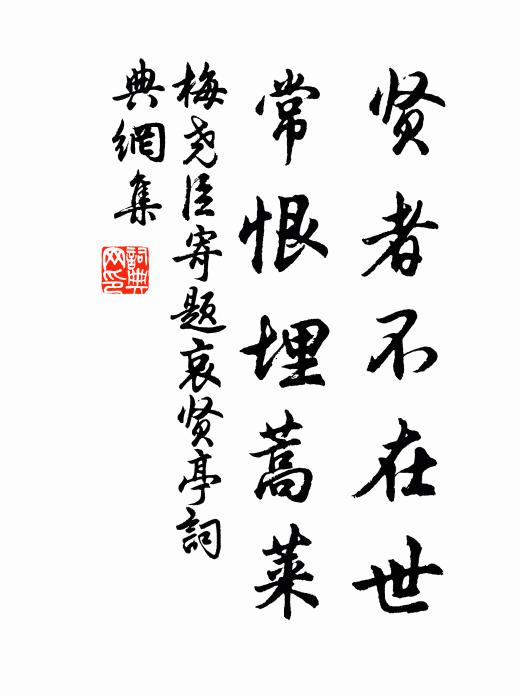 贤者不在世
常恨埋蒿莱
梅尧臣寄题哀贤亭詞
典網集
詞典
网印